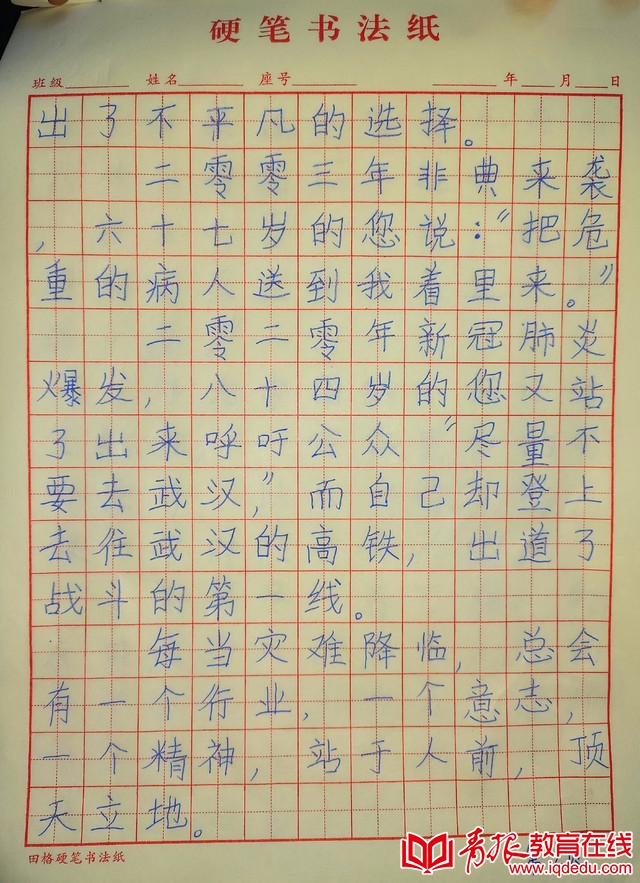 硬笔书法纸
班级 姓名 座号 年 月 日
出了不平凡的选择。
二零零三年非典来袭
，六十七岁的您说：“把危
重的病人送到我着里来。”
二零二零年新冠肺炎
爆发，八十四岁的您又站
了出来呼吁公众“尽量不
要去武汉，”而自己却登上
去往武汉的高铁，出道了
战斗的第一线。
每当灾难降临，总会
有一个行业，一个意志，
一个精神，站于人前，顶
天立地。
田格硬笔书法纸
青报教育在线
www.iqdedu.com